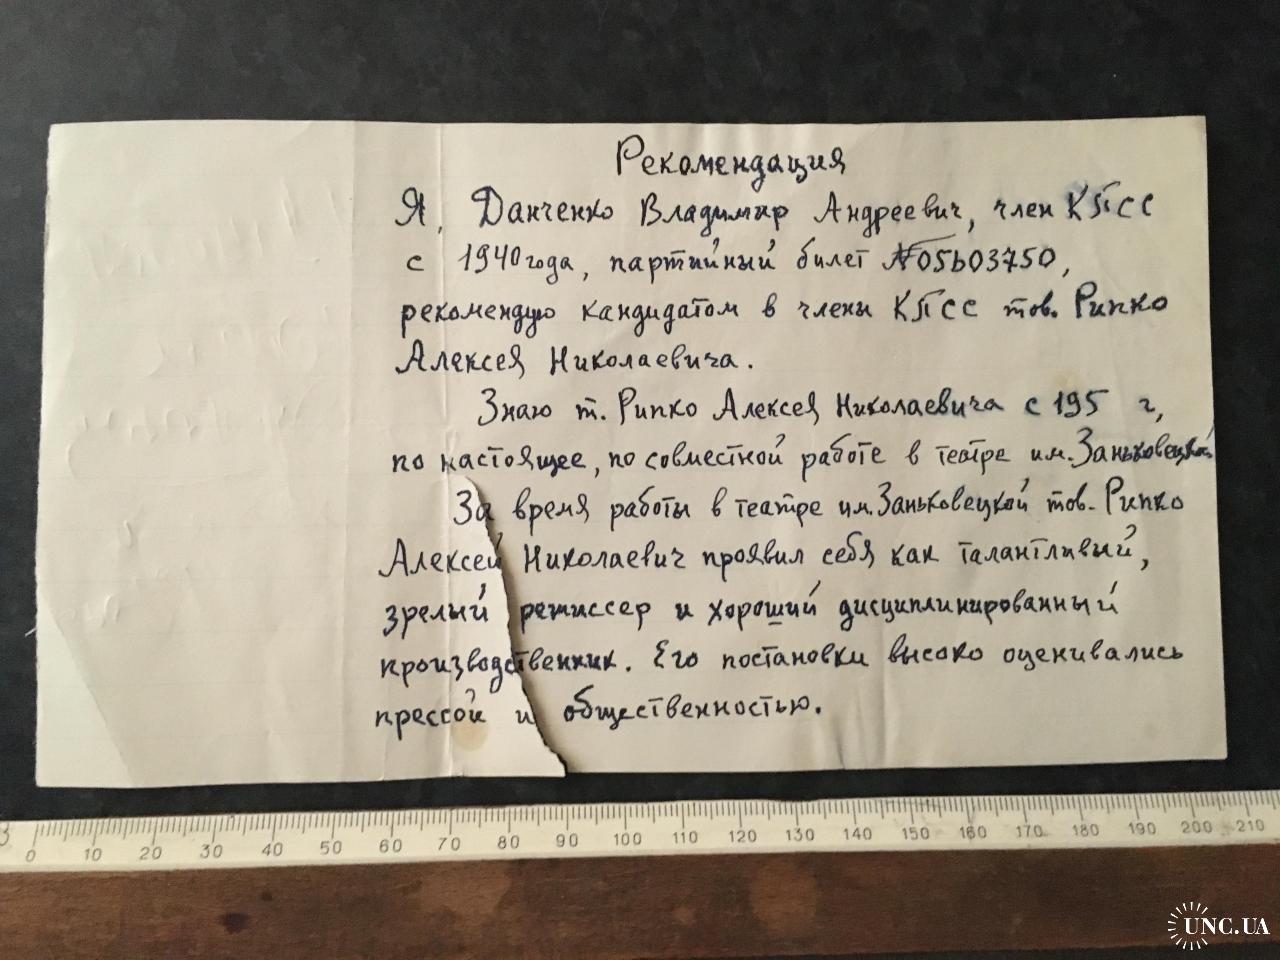 Рекомендация
Я, Данченко Владимир Андреевич, член КПСС
с 1940 года, партийный билет №05603750,
рекомендую кандидатом в члены КПСС тов. Рипко
Алексея Николаевича.
Знаю т. Рипко Алексея Николаевича с 195 г,
по настоящее, по совместной работе в театре им. Заньковецкой
За время работы в театре им. Заньковецкой тов. Рипко
Алексей Николаевич проявил себя как талантливый,
зрелый режиссер и хороший дисциплинированный
производственник. Его постановки высоко оценивались
прессой и общественностью.
0 10 20 30 40 50 60 70 80 90 100 110 120 130 140 150 160 170 180 190 200 210
UNC.UA